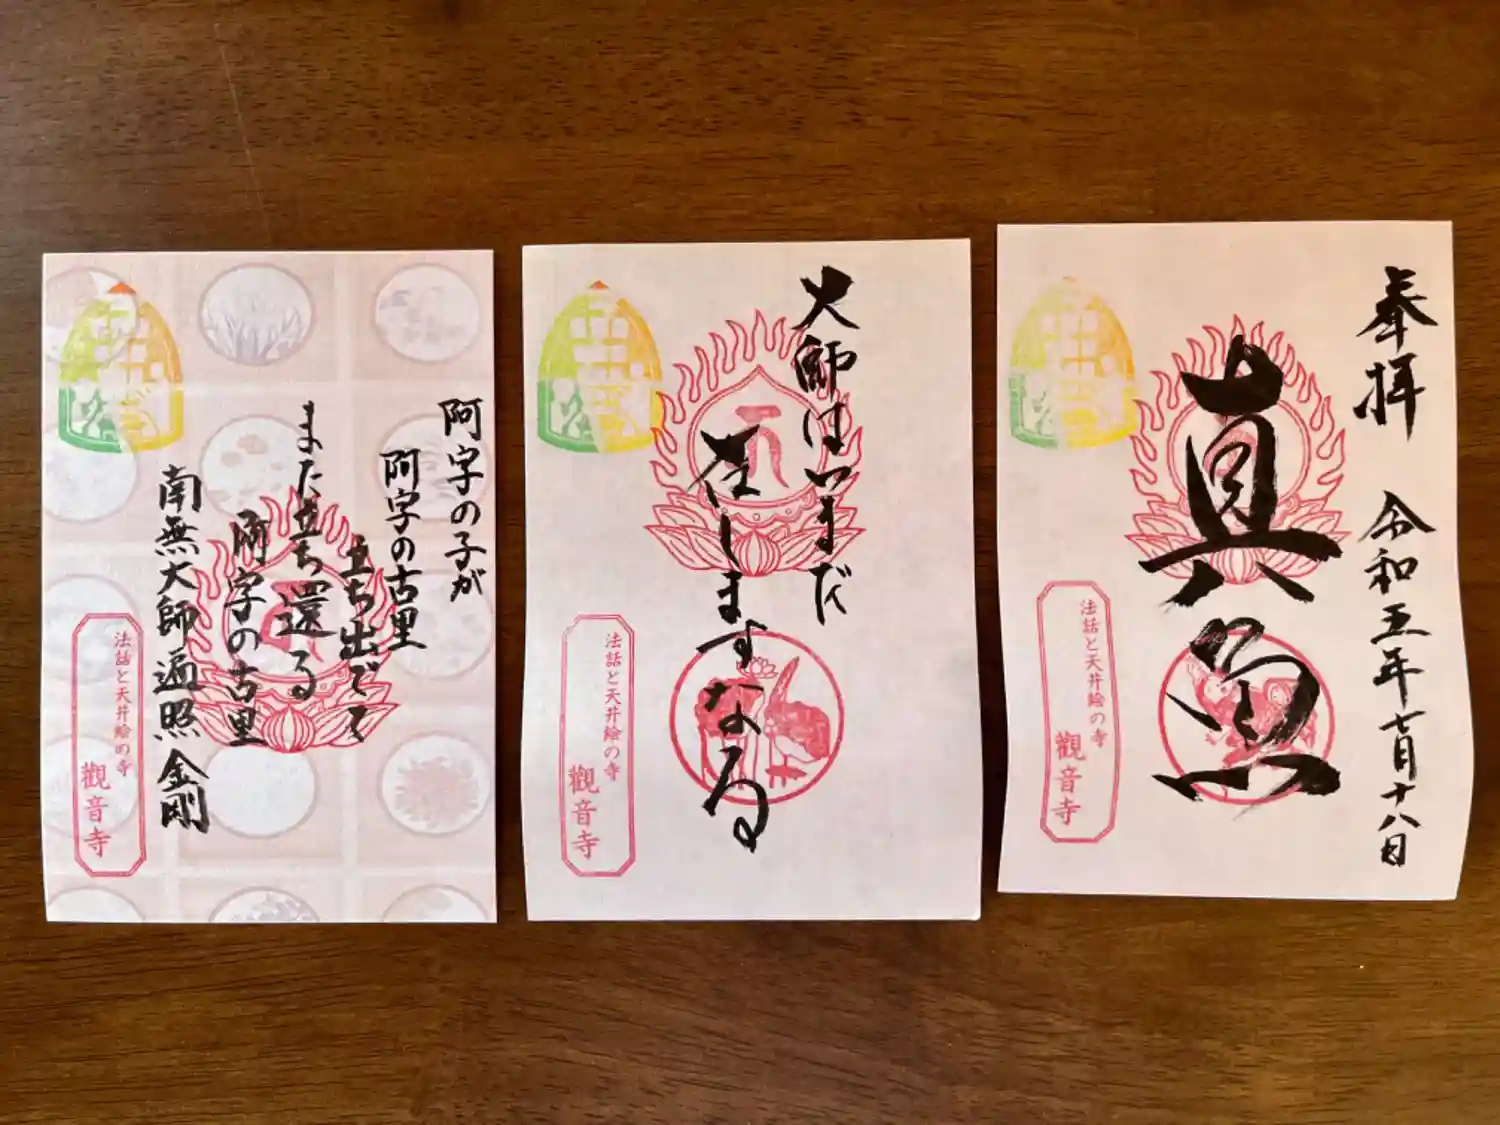 奉拝 令和五年七月十八日
真魚
法話と天井絵の寺
觀音寺
大師はいまだ
在しますなる
法話と天井絵の寺
觀音寺
阿字の子が
阿字の古里
立ち出でて
また立ち還る
阿字の古里
南無大師遍照金剛
法話と天井絵の寺
觀音寺